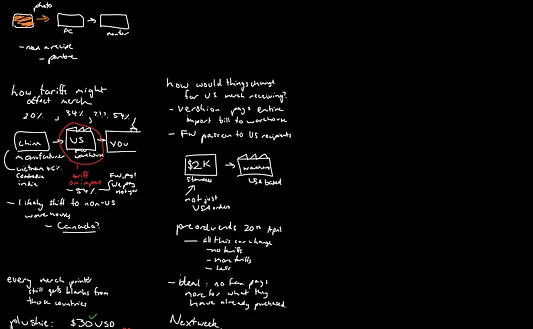 photo
PC
monitor
how tariffs might
affect merch
20%, 34%, ???, 54%
China
US
YOU
warehouse
manufacturer
tariff
on import
54%
- Vietnam 46%
Cambodia
india
- likely shift to non-US
warehouses
- Canada?
every merch printer
still gets blanks from
those countries
plushie: $30 USD
how would things change
for US merch receiving?
- version pays entire
import bill to warehouse
- FW passes on to US recipients
$2K
warehouse
USA based
not just
USA orders
preorder ends 20th April
- all this can change
- no tariffs
- more tariffs
- less
- ideal: no fan pays
more for what they
have already purchased
Next week